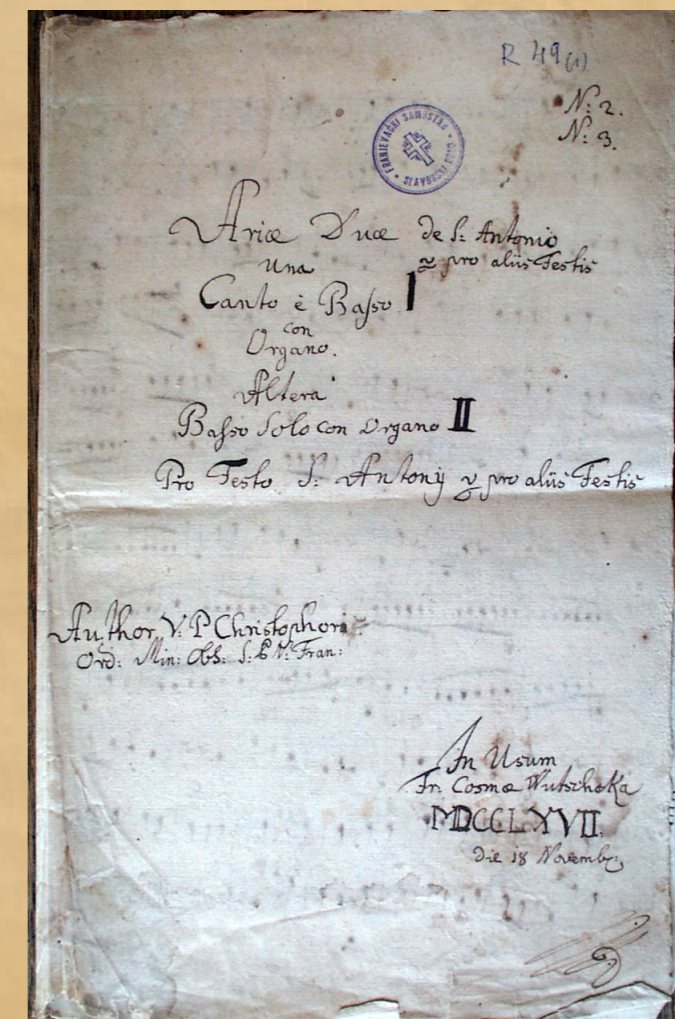 R 49 (1)
N: 2.
N: 3.
FRANJEVAČKI SAMOSTAN
SLAVONSKI BROD
Ariæ Duæ de S: Antonio
Una & pro aliis Festis
Canto è Basso I
con
Organo.
Altera
Basso Solo con Organo II
Pro Festo S: Antonÿ & pro aliis Festis
Author V: P Christophori
Ord: Min: Obs: S: P. N: Fran:
In Usum
Fr. Cosmæ Wutscheka
MDCCLXVII.
die 18 Novemb: